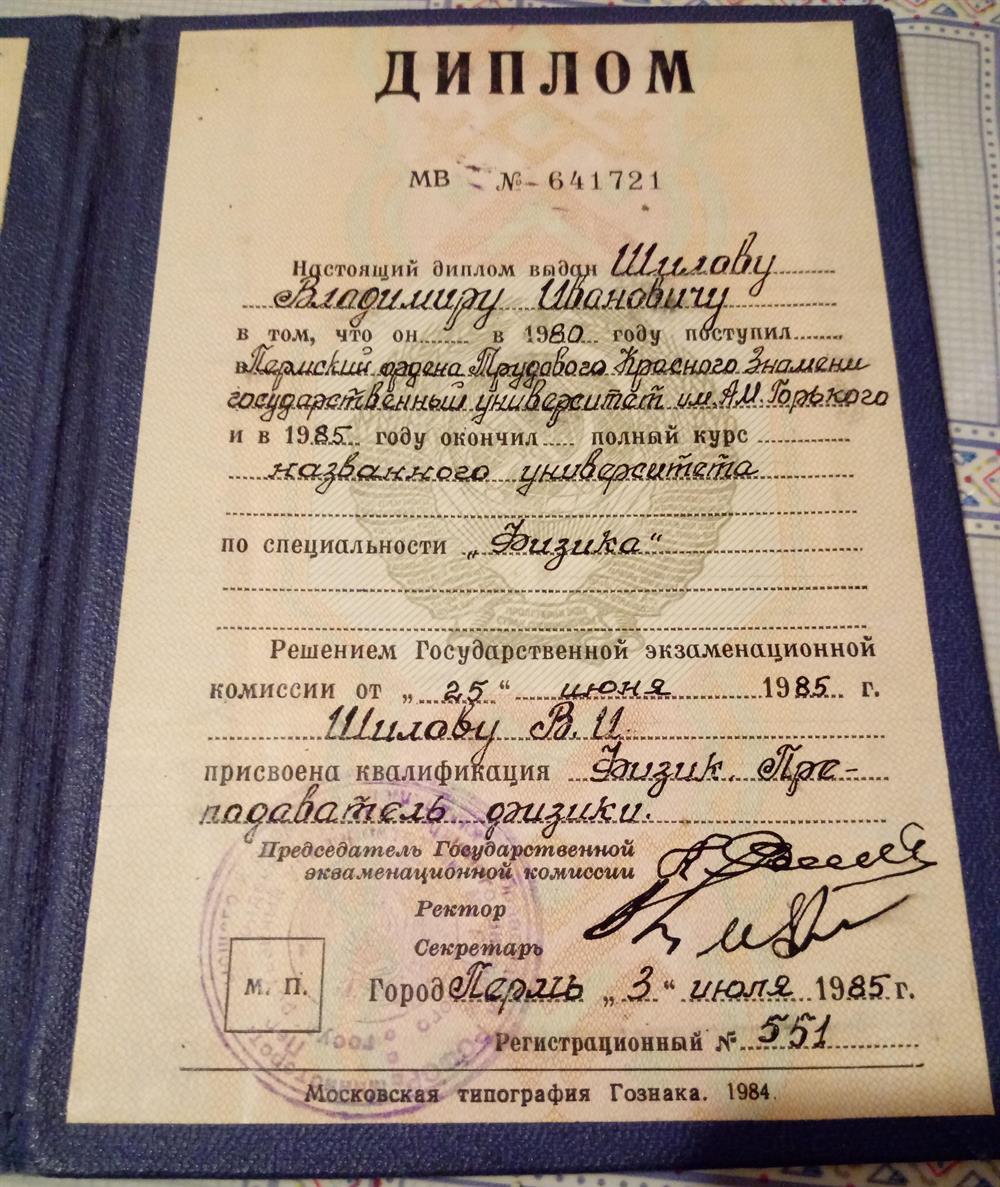 ДИПЛОМ
МВ № 641721
Настоящий диплом выдан Шилову
Владимиру Ивановичу
в том, что он в 1980 году поступил
в Пермский ордена Трудового Красного Знамени
государственный университет им. А.М. Горького
и в 1985 году окончил полный курс
названного университета
по специальности „Физика“
Решением Государственной экзаменационной
комиссии от „25“ июня 1985 г.
Шилову В. И.
присвоена квалификация Физик. Пре-
подаватель физики.
Председатель Государственной
экзаменационной комиссии
Ректор
Секретарь
М. П.
Город Пермь „3“ июля 1985 г.
Регистрационный № 551
Московская типография Гознака. 1984.